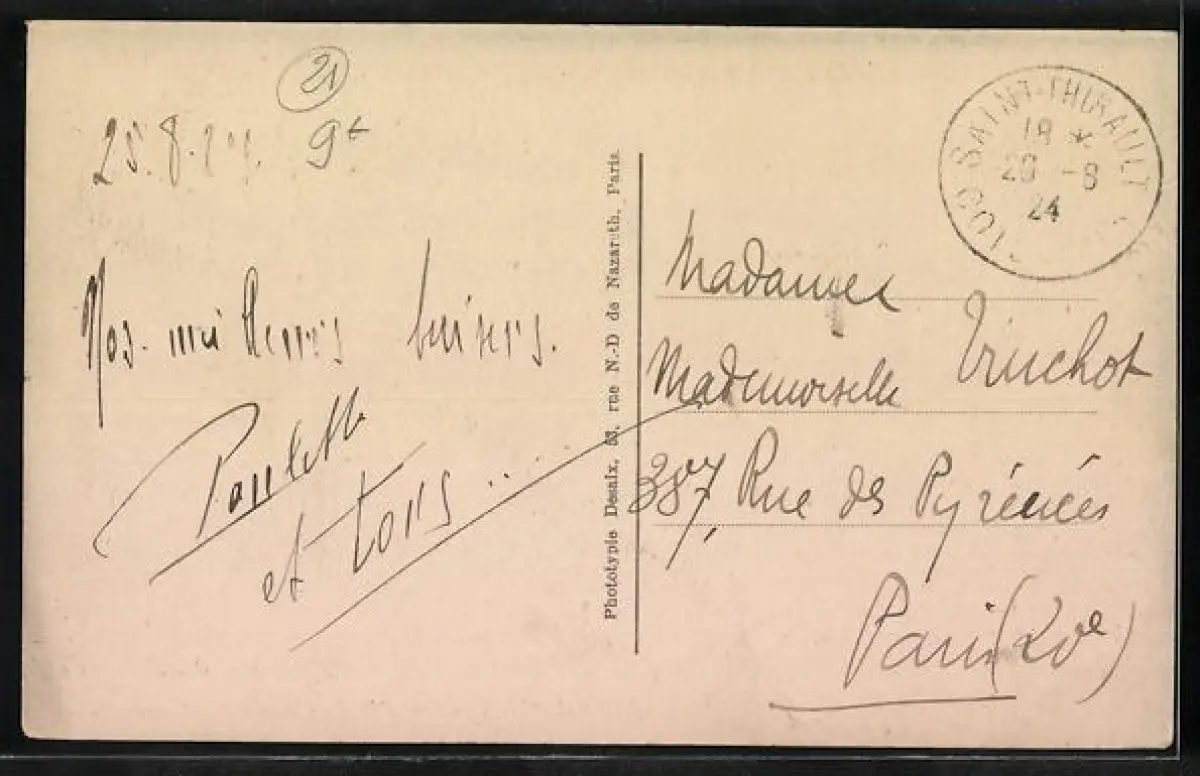 21
25.8.24. 9t
Nos meilleurs baisers.
Paulette
et tous...
Phototypie Desaix, 53, rue N.-D de Nazareth, Paris
SAINT-THIBAULT
18 *
26 -8
24
Madame
Mademoiselle Truchot
387, Rue des Pyrénées
Paris (20e)